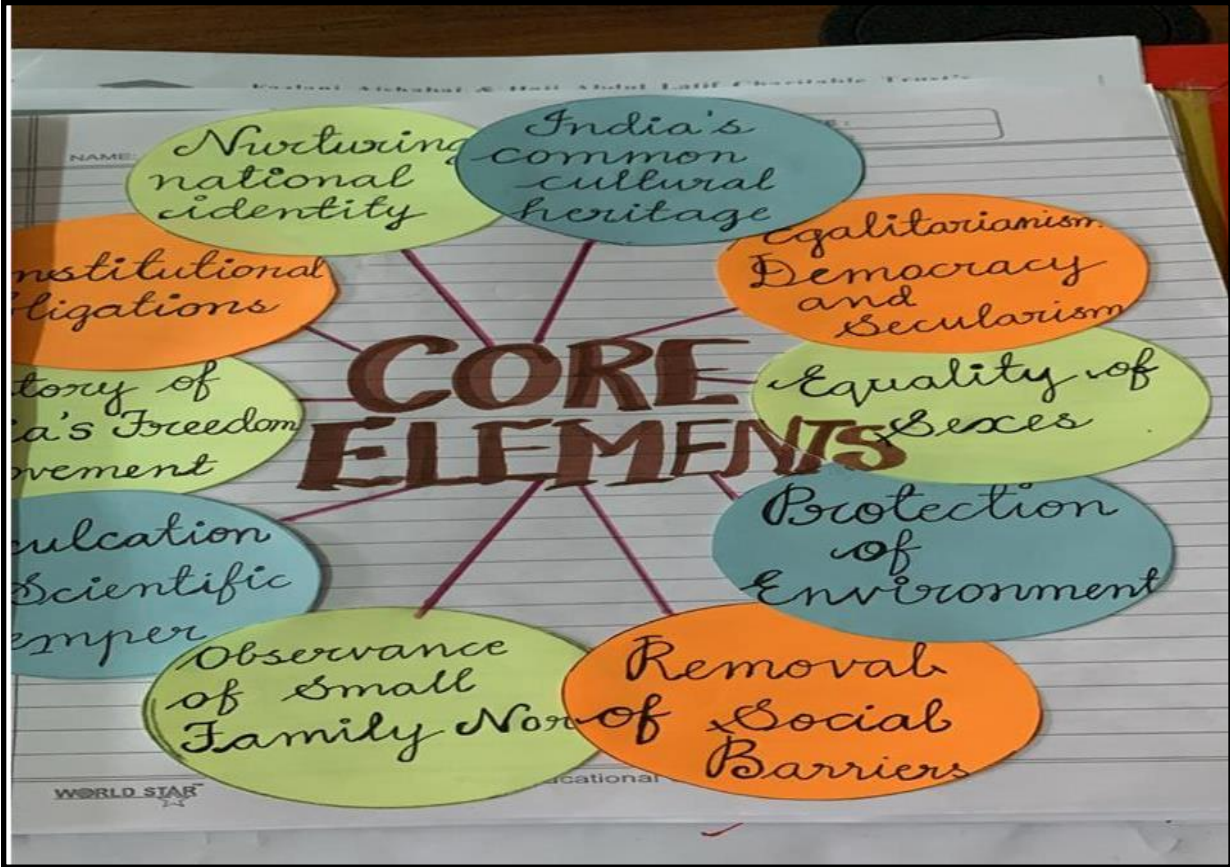 NAME:
Nurturing
national
identity
India's
common
cultural
heritage
Egalitarianism
Democracy
and
Secularism
Equality of
Sexes
Protection
of
Environment
Removal
of Social
Barriers
Observance
of Small
Family Nor
culcation
Scientific
emper
tory of
a's Freedom
vement
nstitutional
ligations
CORE
ELEMENTS
cational
WORLD STAR